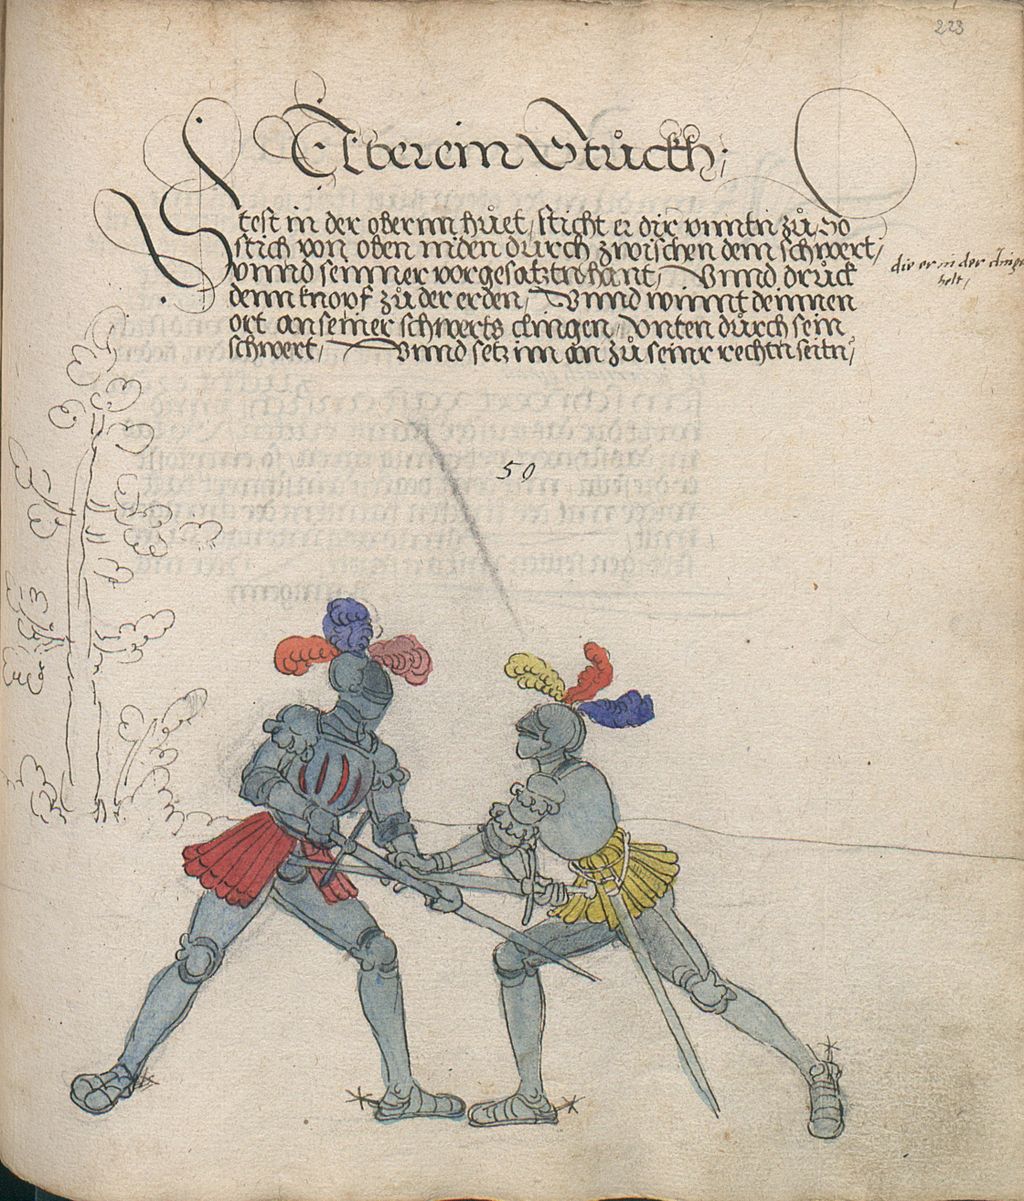 223
Aber ein Stuckh;
Stest in der obernn huet, sticht er dir unntn zů, So
stich von oben niden durch zwischen dem schwert,
Unnd seinner vorgesatztn hant, Unnd druck
denn knopf zů der erden, Unnd winnt deinnen
ort an seiner schwerts clingen, unten důrch sein
schwert, Unnd setz im an zů seinr rechtn seitn,
die er in der clinge
helt,
50